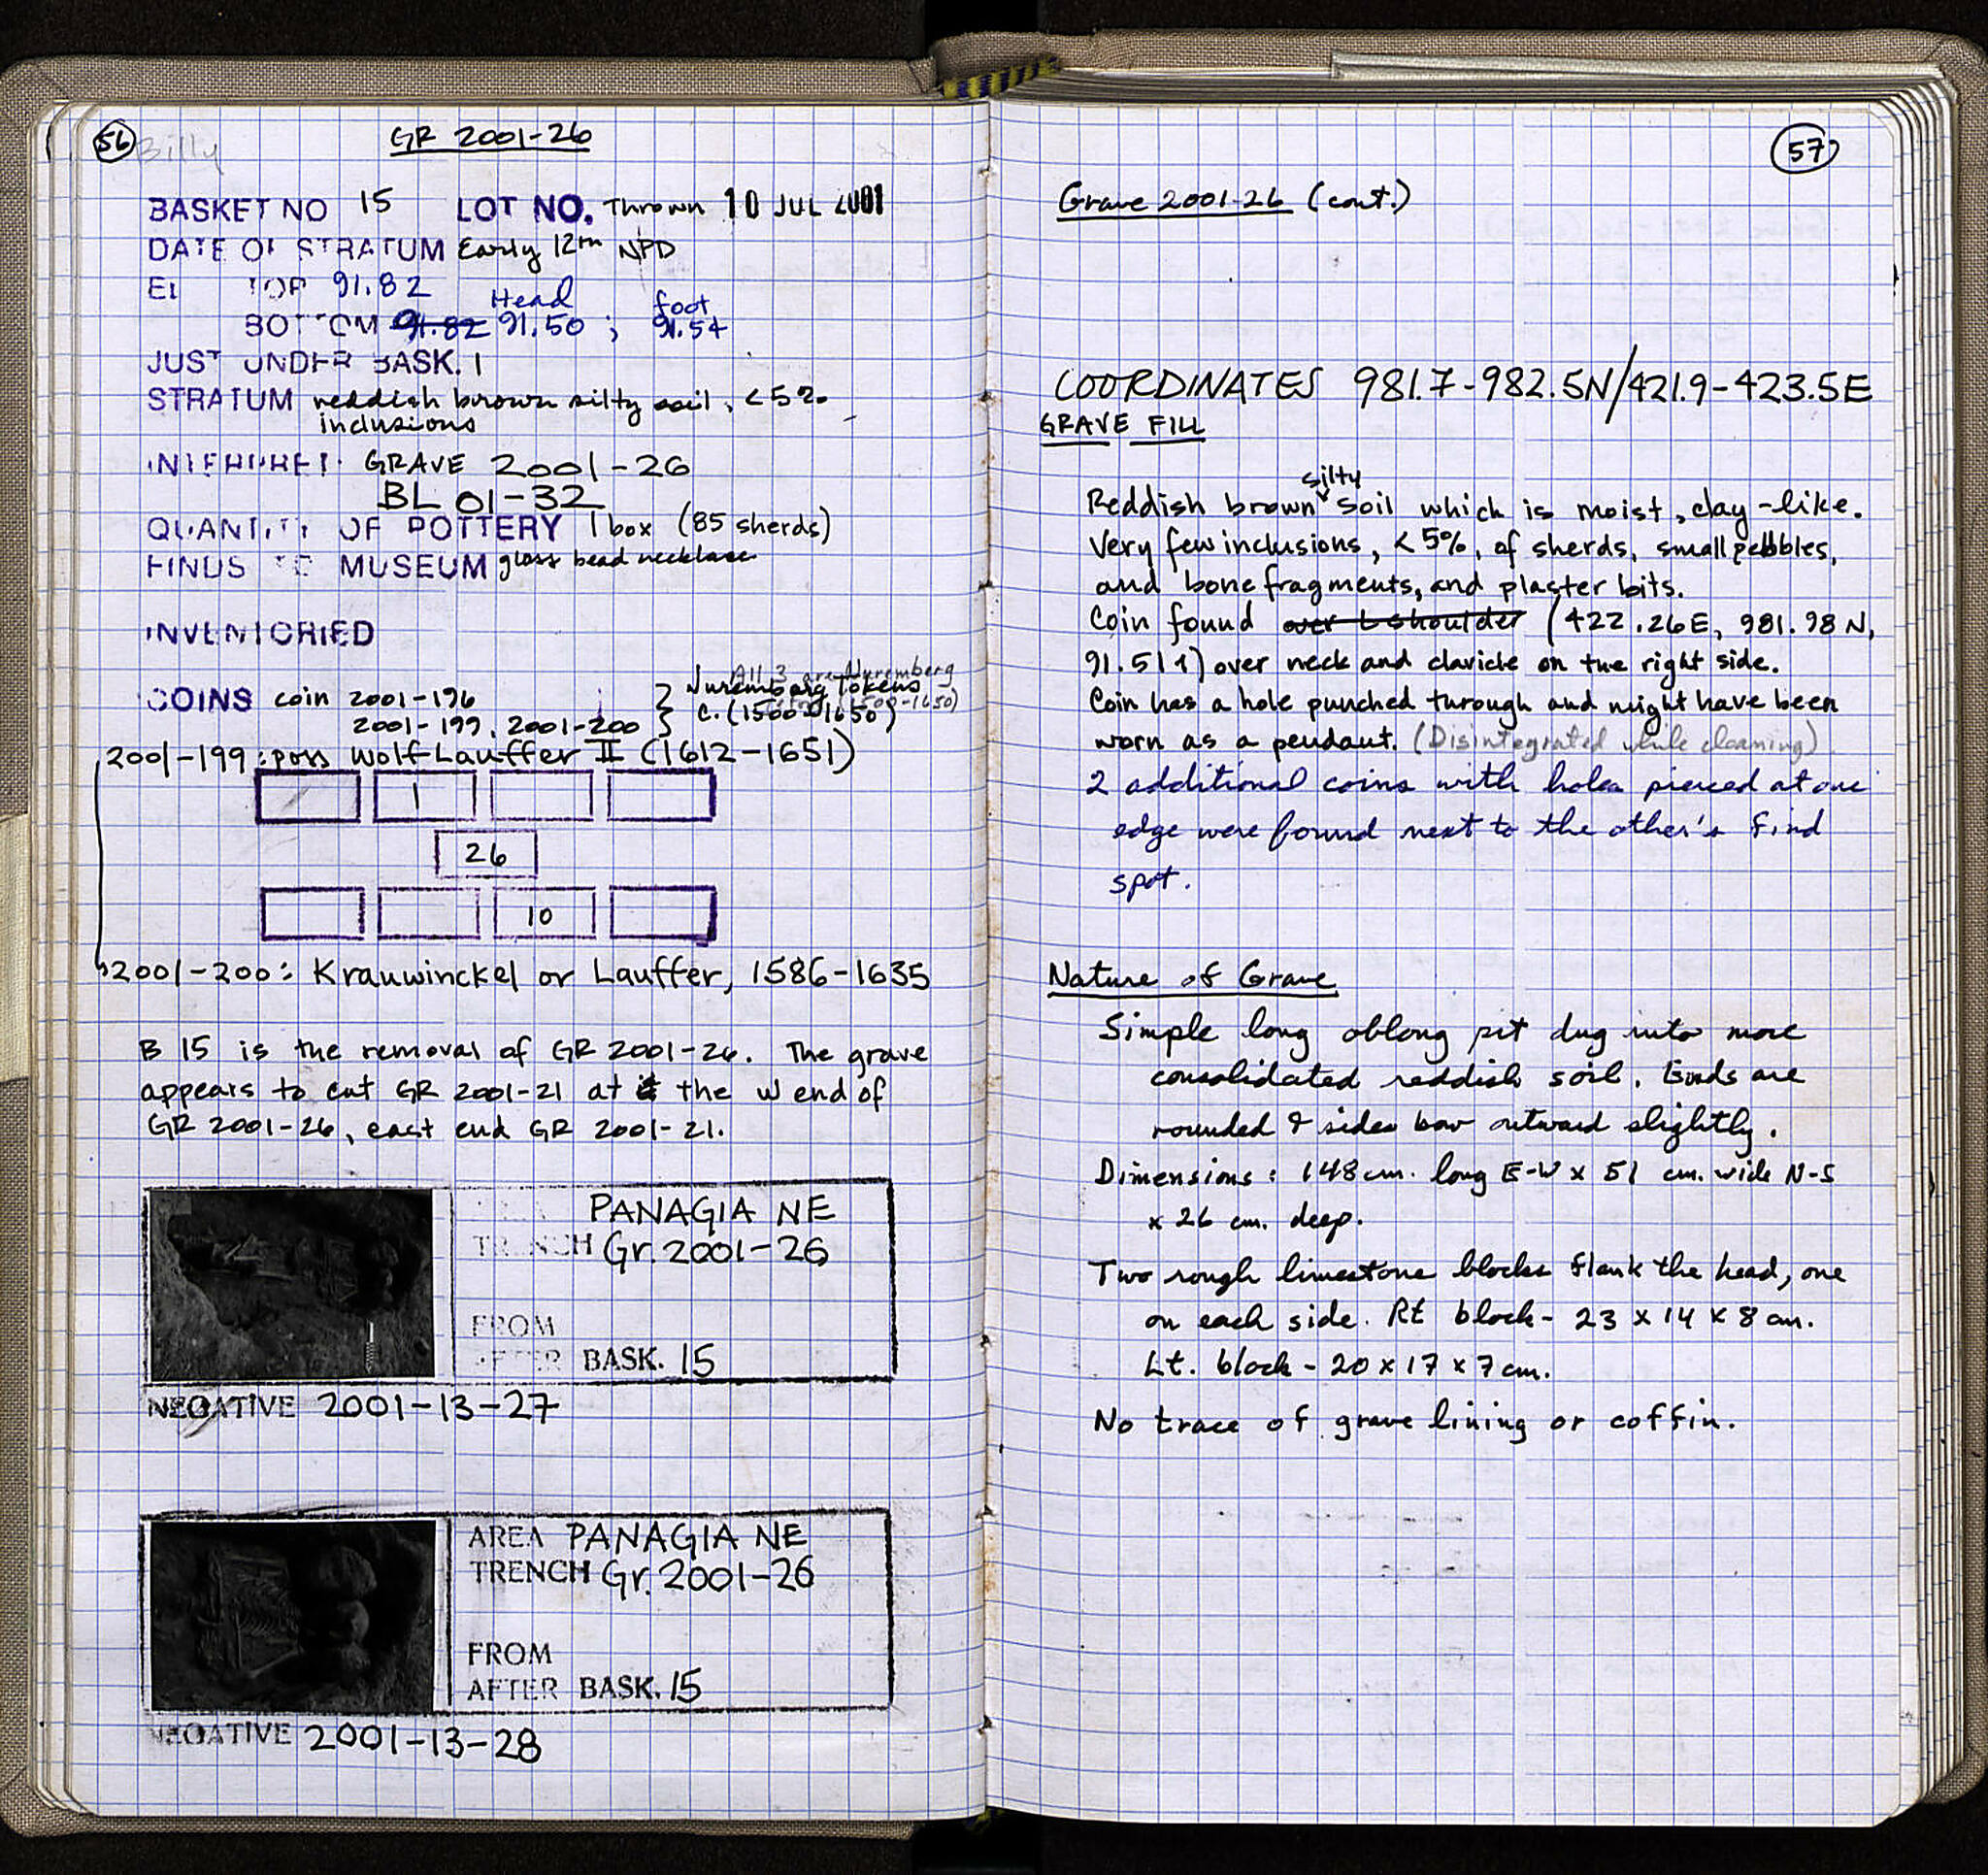 56 Billy
GR 2001-26
BASKET NO 15 LOT NO. Thrown 10 JUL 2001
DATE OF STRATUM Early 12th NPD
EL TOP 91.82
Head foot
BOTTOM 91.82 91.50 ; 91.54
JUST UNDER BASK. 1
STRATUM reddish brown silty soil, <5%
inclusions
INTERPRET. GRAVE 2001-26
BL 01-32
QUANTITY OF POTTERY 1 box (85 sherds)
FINDS TO MUSEUM glass bead necklace
INVENTORIED
All 3 are Nuremberg
COINS coin 2001-196 } Nuremburg Tokens
2001-199, 2001-200 c. (1500-1650)
2001-199: poss Wolf Lauffer II (1612-1651)
1
26
10
2001-200: Krauwinckel or Lauffer, 1586-1635
B 15 is the removal of GR 2001-26. The grave
appears to cut GR 2001-21 at the W end of
GR 2001-26, east end GR 2001-21.
PANAGIA NE
TRENCH Gr. 2001-26
FROM
AFTER BASK. 15
NEGATIVE 2001-13-27
AREA PANAGIA NE
TRENCH Gr. 2001-26
FROM
AFTER BASK. 15
NEGATIVE 2001-13-28
57
Grave 2001-26 (cont.)
COORDINATES 981.7-982.5N/421.9-423.5E
GRAVE FILL
silty
Reddish brown soil which is moist, clay-like.
Very few inclusions, <5%, of sherds, small pebbles,
and bone fragments, and plaster bits.
Coin found over L shoulder (422.26E, 981.98N,
91.511) over neck and clavicle on the right side.
Coin has a hole punched through and might have been
worn as a pendant. (Disintegrated while cleaning)
2 additional coins with holes pierced at one
edge were found next to the other's find
spot.
Nature of Grave
Simple long oblong pit dug into more
consolidated reddish soil. Ends are
rounded & sides bow outward slightly.
Dimensions: 148 cm. long E-W x 51 cm. wide N-S
x 26 cm. deep.
Two rough limestone blocks flank the head, one
on each side. Rt block - 23 x 14 x 8 cm.
Lt. block - 20 x 17 x 7 cm.
No trace of grave lining or coffin.